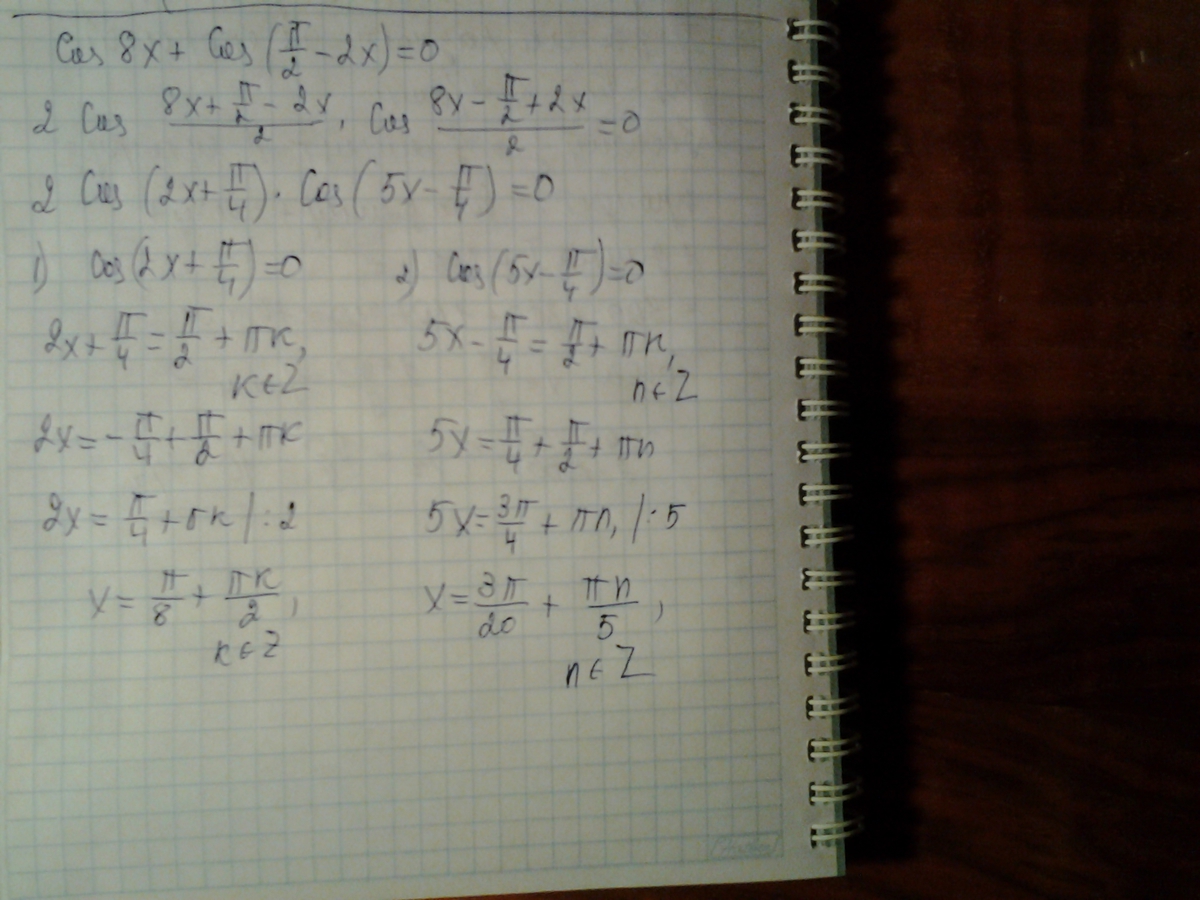 Cos 8x + Cos (π/2 - 2x) = 0
2 Cos (8x + π/2 - 2x)/2 · Cos (8x - π/2 + 2x)/2 = 0
2 Cos (2x + π/4) · Cos (5x - π/4) = 0
1) Cos (2x + π/4) = 0
2x + π/4 = π/2 + πk,
k ∈ Z
2x = -π/4 + π/2 + πk
2x = π/4 + πk | : 2
x = π/8 + πk/2,
k ∈ Z
2) Cos (5x - π/4) = 0
5x - π/4 = π/2 + πn,
n ∈ Z
5x = π/4 + π/2 + πn
5x = 3π/4 + πn, | : 5
x = 3π/20 + πn/5,
n ∈ Z